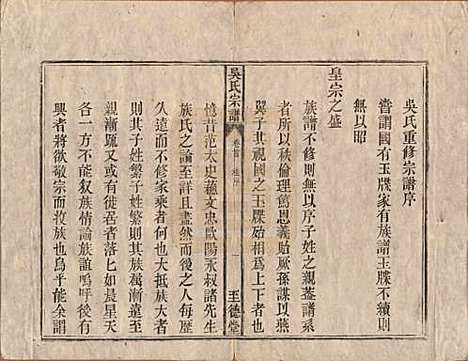 吳氏重修宗譜序
嘗謂國有玉牒家有族譜玉牒不續則
無以昭
皇宗之盛
族譜不修則無以序子姓之親蓋譜系
者所以秩倫理篤恩義貽厥孫謀以燕
翼子其視國之玉牒殆相為上下者也
吳氏宗譜
卷首
序
一
至德堂
憶昔范太史蘊文忠歐陽永叔諸先生
族氏之論至詳且盡然而後之人每歷
久遠而不修家乘者何也大抵族大
則其子姓繁子姓繁則其
親漸疏又或有徙居者落落如晨星天
各一方不能叙族情論族誼嗚呼後有
興者將欲敬宗而收族也烏乎能余謂